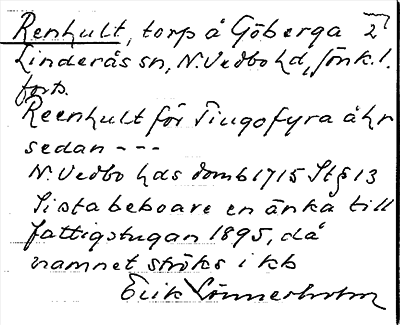 Renhult, torp å Göberga 2
Linderås sn, N. Vedbo hd, Jönk. l.
forts.
Reenhult för Tiugofyra åhr
sedan - - -
N. Vedbo hds domb 1715 St § 13
Sista beboare en änka till
fattigstugan 1895, då
namnet ströks i kb
Erik Lönnerholm